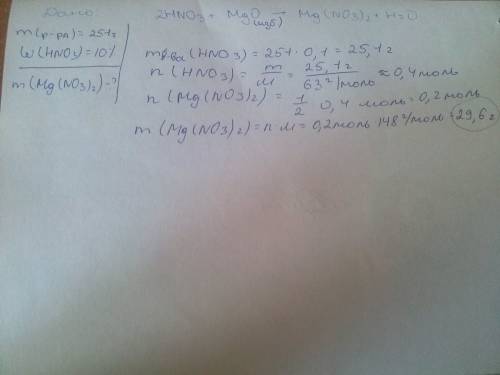 Дано:
m(р-ра) = 251г
W(HNO3) = 10%
m(Mg(NO3)2) - ?
2HNO3 + MgO (изб) → Mg(NO3)2 + H2O
m р-ва (HNO3) = 251 · 0,1 = 25,1 г
n (HNO3) = m/M = 25,1 г / 63 г/моль ≈ 0,4 моль
n (Mg(NO3)2) = 1/2 0,4 моль = 0,2 моль
m (Mg(NO3)2) = n · M = 0,2 моль · 148 г/моль = 29,6 г